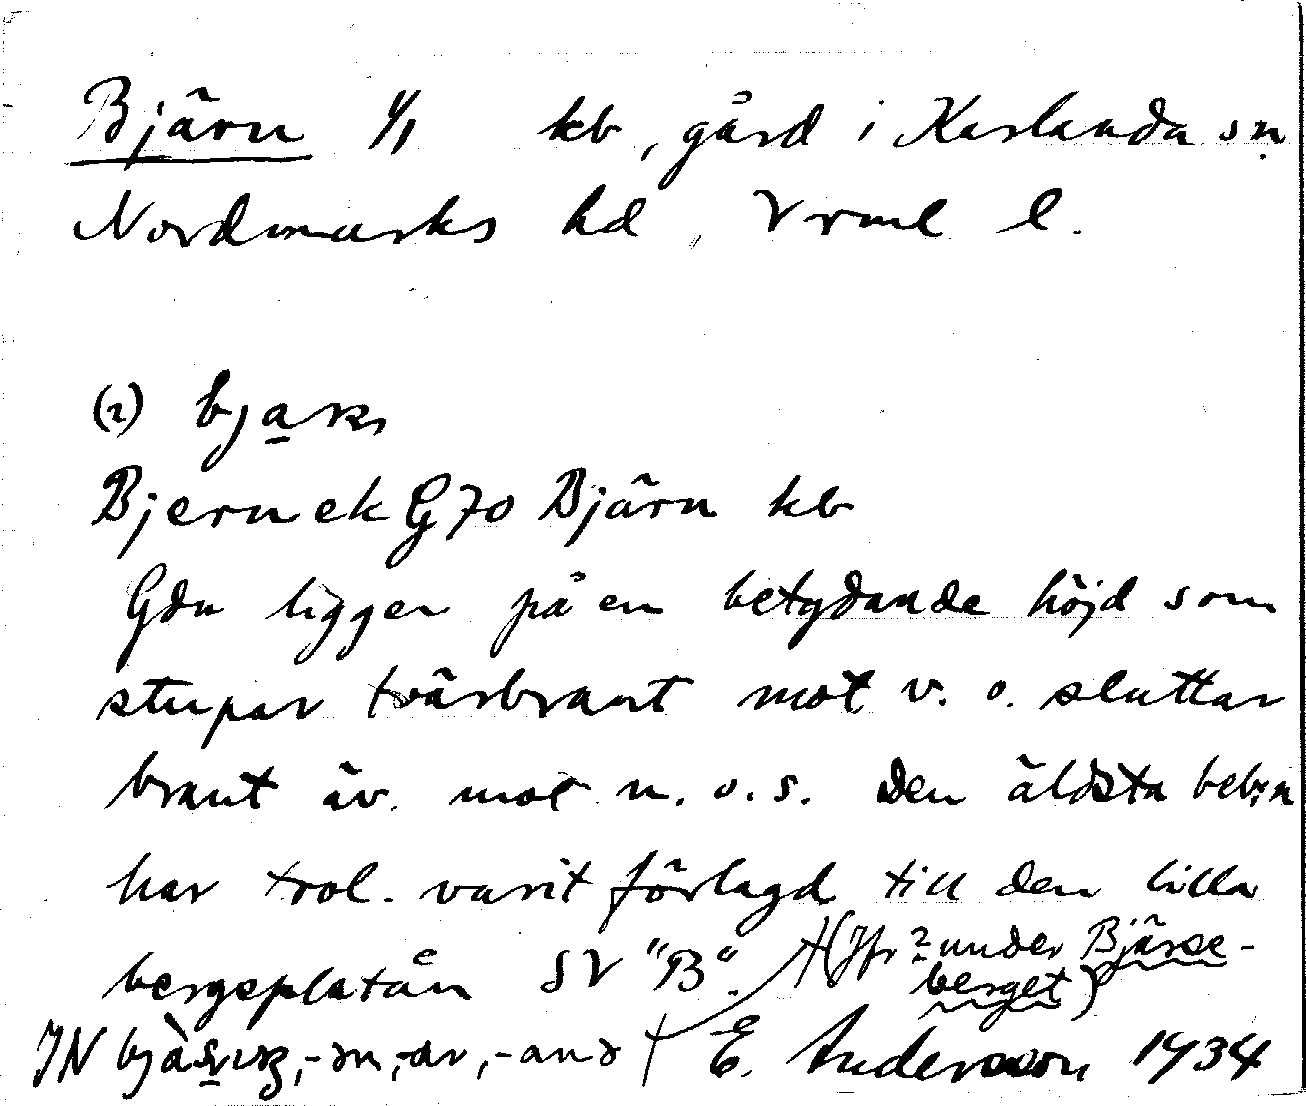 Bjärn 1/1 kb, gård i Karlanda sn
Nordmarks hd, Vrml l.
(2)
Bjernek G 70 Bjärn kb
Gdn ligger på en betydande höjd som
stupar tvärbrant mot v. o. sluttar
brant äv. mot n. o. s. Den äldsta beb:n
har trol. varit förlagd till den lilla
bergsplatån SV "B". (Jfr 2 under Bjärse-
berget)
IN -ar, E. Andersson 1934